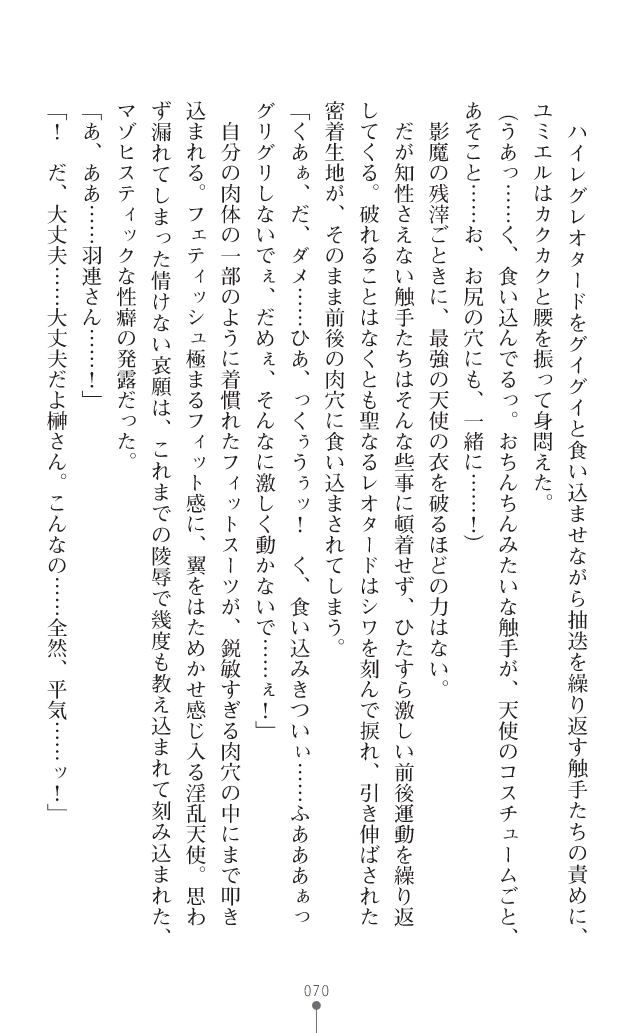 ハイレグレオタードをグイグイと食い込ませながら抽迭を繰り返す触手たちの責めに、
ユミエルはカクカクと腰を振って身悶えた。
（うあっ……く、食い込んでるっ。おちんちんみたいな触手が、天使のコスチュームごと、
あそこと……お、お尻の穴にも、一緒に……！）
影魔の残滓ごときに、最強の天使の衣を破るほどの力はない。
だが知性さえない触手たちはそんな些事に頓着せず、ひたすら激しい前後運動を繰り返
してくる。破れることはなくとも聖なるレオタードはシワを刻んで捩れ、引き伸ばされた
密着生地が、そのまま前後の肉穴に食い込まされてしまう。
「くあぁ、だ、ダメ……ひあ、っくぅうぅッ！　く、食い込みきついぃ……ふあああぁっ
グリグリしないでぇ、だめぇ、そんなに激しく動かないで……ぇ！」
自分の肉体の一部のように着慣れたフィットスーツが、鋭敏すぎる肉穴の中にまで叩き
込まれる。フェティッシュ極まるフィット感に、翼をはためかせ感じ入る淫乱天使。思わ
ず漏れてしまった情けない哀願は、これまでの陵辱で幾度も教え込まれて刻み込まれた、
マゾヒスティックな性癖の発露だった。
「あ、ああ……羽連さん……！」
「！　だ、大丈夫……大丈夫だよ榊さん。こんなの……全然、平気……ッ！」
070